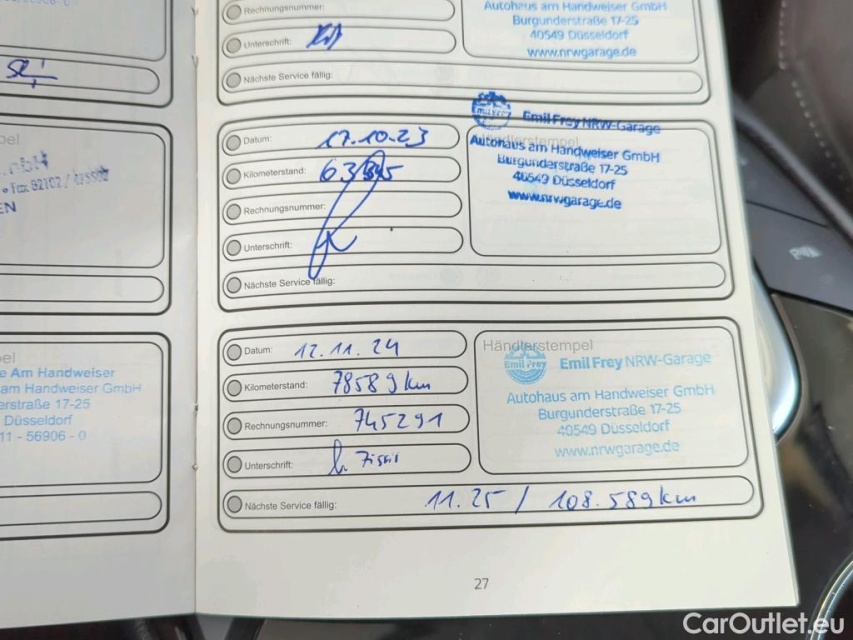 Rechnungsnummer:
Unterschrift:
Nächste Service fällig:
Autohaus am Handweiser GmbH
Burgunderstraße 17-25
40549 Düsseldorf
www.nrwgarage.de
Datum: 17.10.23
Kilometerstand:
Rechnungsnummer:
Unterschrift:
Nächste Service fällig:
Händlerstempel
Emil Frey NRW-Garage
Autohaus am Handweiser GmbH
Burgunderstraße 17-25
40549 Düsseldorf
www.nrwgarage.de
EN
Am Handweiser
am Handweiser GmbH
17-25
Düsseldorf
11 - 56906 - 0
Datum: 12.11.24
Kilometerstand: 78589km
Rechnungsnummer: 745291
Unterschrift:
Nächste Service fällig: 11.25 / 108.589km
Händlerstempel
Emil Frey
Emil Frey NRW-Garage
Autohaus am Handweiser GmbH
Burgunderstraße 17-25
40549 Düsseldorf
www.nrwgarage.de
27
CarOutlet.eu